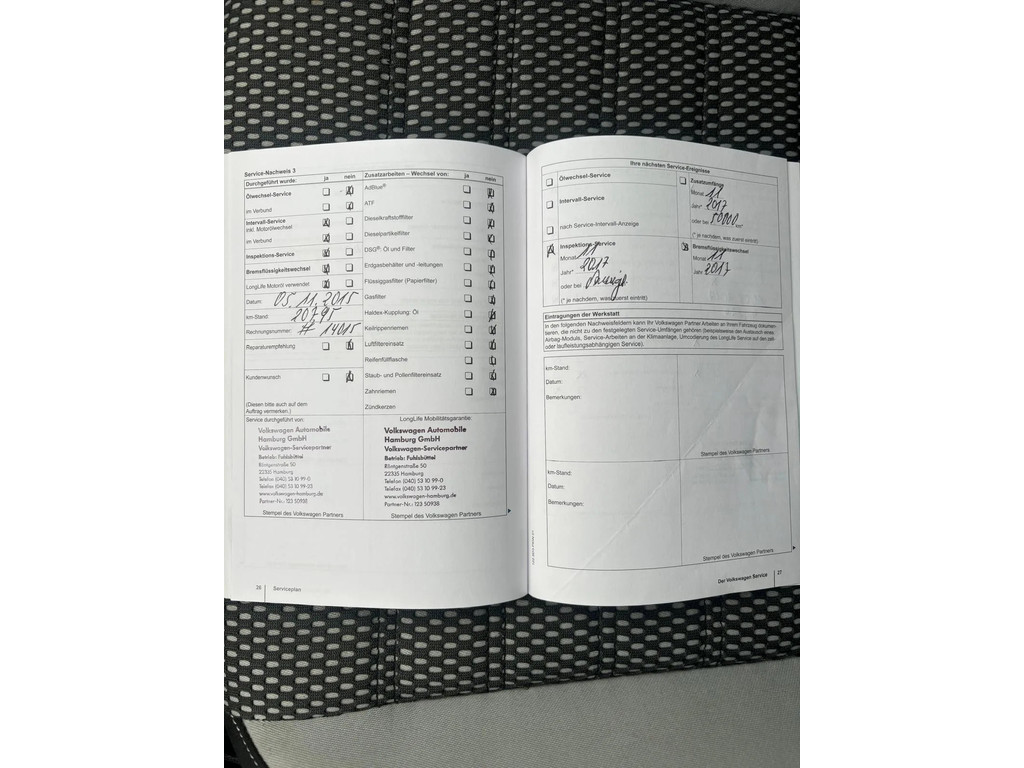 Service-Nachweis 3
Durchgeführt wurde: ja nein
Ölwechsel-Service
im Verbund
Intervall-Service
inkl. Motorölwechsel
im Verbund
Inspektions-Service
Bremsflüssigkeitswechsel
LongLife Motoröl verwendet
Datum: 05.11.2015
km-Stand: 20795
Rechnungsnummer: 14015
Reparaturempfehlung:
Kundenwunsch
(Diesen bitte auch auf dem
Auftrag vermerken.)
Service durchgeführt von:
Volkswagen Automobile
Hamburg GmbH
Volkswagen-Servicepartner
Betrieb: Fuhlsbüttel
Röntgenstraße 50
22335 Hamburg
Telefon (040) 53 10 99-0
Telefax (040) 53 10 99-23
www.volkswagen-hamburg.de
Partner-Nr.: 123 50938
Stempel des Volkswagen Partners
Zusatzarbeiten – Wechsel von: ja nein
AdBlue®
ATF
Dieselkraftstofffilter
Dieselpartikelfilter
DSG®: Öl und Filter
Entgasbehälter und -leitungen
Flüssiggasfilter (Papierfilter)
Gasfilter
Haldex-Kupplung: Öl
Keilrippenriemen
Luftfiltereinsatz
Reifenfüllflasche
Staub- und Pollenfiltereinsatz
Zahnriemen
Zündkerzen
LongLife Mobilitätsgarantie:
Volkswagen Automobile
Hamburg GmbH
Volkswagen-Servicepartner
Betrieb: Fuhlsbüttel
Röntgenstraße 50
22335 Hamburg
Telefon (040) 53 10 99-0
Telefax (040) 53 10 99-23
www.volkswagen-hamburg.de
Partner-Nr.: 123 50938
Stempel des Volkswagen Partners
26 Serviceplan
Ihre nächsten Service-Ereignisse
Ölwechsel-Service
Intervall-Service
nach Service-Intervall-Anzeige
Zusatzumfang
Monat 11
Jahr* 2017
oder bei 50000 km*
(* je nachdem, was zuerst eintritt)
Inspektions-Service
Monat 11
Jahr* 2017
oder bei
(* je nachdem, was zuerst eintritt)
Bremsflüssigkeitswechsel
Monat 11
Jahr 2017
Eintragungen der Werkstatt
In den folgenden Nachweisfeldern kann Ihr Volkswagen Partner Arbeiten an Ihrem Fahrzeug dokumen-
tieren, die nicht zu den festgelegten Service-Umfängen gehören (beispielsweise den Austausch eines
Airbag-Moduls, Service-Arbeiten an der Klimaanlage, Umcodierung des LongLife Service auf den zeit-
oder laufleistungsabhängigen Service).
km-Stand:
Datum:
Bemerkungen:
Stempel des Volkswagen Partners
km-Stand:
Datum:
Bemerkungen:
Stempel des Volkswagen Partners
Der Volkswagen Service 27